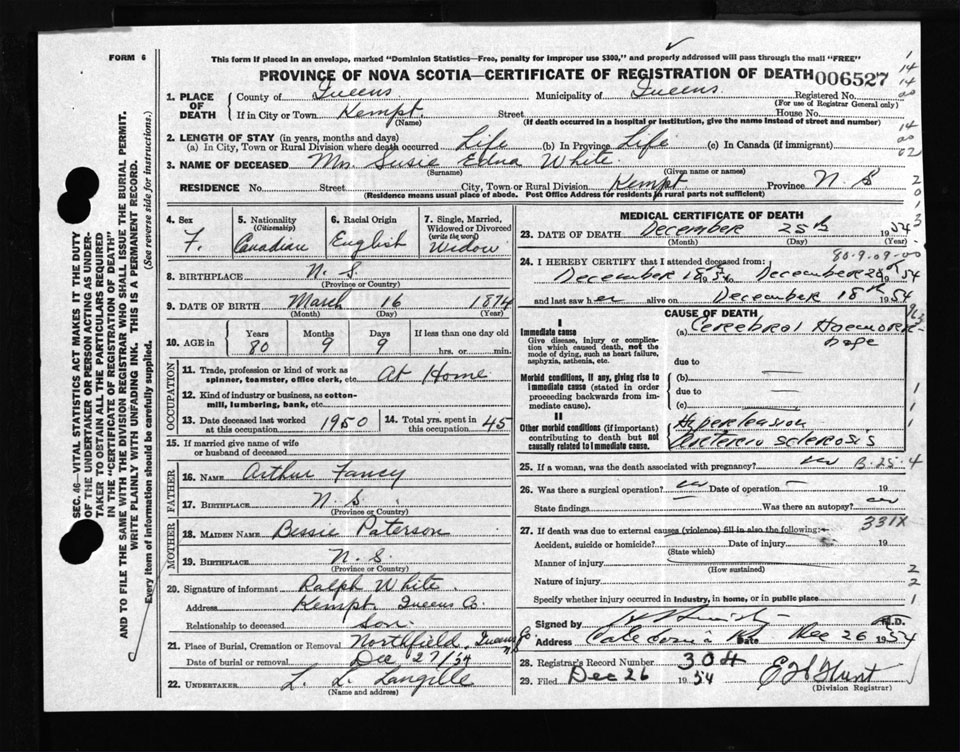 FORM 6
This form if placed in an envelope, marked "Dominion Statistics—Free, penalty for improper use $300," and properly addressed will pass through the mail "FREE"
PROVINCE OF NOVA SCOTIA—CERTIFICATE OF REGISTRATION OF DEATH 006527
SEC. 46—VITAL STATISTICS ACT MAKES IT THE DUTY
OF THE UNDERTAKER OR PERSON ACTING AS UNDER-
TAKER TO OBTAIN ALL THE PARTICULARS REQUIRED
IN THE "CERTIFICATE OF REGISTRATION OF DEATH"
AND TO FILE THE SAME WITH THE DIVISION REGISTRAR WHO SHALL ISSUE THE BURIAL PERMIT.
WRITE PLAINLY WITH UNFADING INK. THIS IS A PERMANENT RECORD.
Every item of information should be carefully supplied. (See reverse side for instructions.)
1. PLACE OF DEATH County of Queens Municipality of Queens Registered No.
(For use of Registrar General only)
If in City or Town Kempt Street House No.
(Name) (If death occurred in a hospital or institution, give the name instead of street and number)
2. LENGTH OF STAY (in years, months and days)
(a) In City, Town or Rural Division where death occurred Life (b) In Province Life (c) In Canada (if immigrant)
3. NAME OF DECEASED Mrs. Susie Edna White
(Surname) (Given name or names)
RESIDENCE No. Street City, Town or Rural Division Kempt Province N S
(Residence means usual place of abode. Post Office Address for residents in rural parts not sufficient)
4. Sex F.
5. Nationality (Citizenship) Canadian
6. Racial Origin English
7. Single, Married, Widowed or Divorced (write the word) Widow
8. BIRTHPLACE N. S.
(Province or Country)
9. DATE OF BIRTH March 16 1874
(Month) (Day) (Year)
10. AGE in Years 80 Months 9 Days 9 If less than one day old hrs. or min.
OCCUPATION
11. Trade, profession or kind of work as spinner, teamster, office clerk, etc. At Home
12. Kind of industry or business, as cotton-mill, lumbering, bank, etc.
13. Date deceased last worked at this occupation 1950 14. Total yrs. spent in this occupation 45
15. If married give name of wife or husband of deceased
FATHER
16. NAME Arthur Fancy
17. BIRTHPLACE N. S.
(Province or Country)
MOTHER
18. MAIDEN NAME Bessie Paterson
19. BIRTHPLACE N. S
(Province or Country)
20. Signature of informant Ralph White
Address Kempt Queens Co.
Relationship to deceased Son.
21. Place of Burial, Cremation or Removal Northfield, Queens Co NS
Date of burial or removal Dec 27/54
22. UNDERTAKER L. L. Langille
(Name and address)
MEDICAL CERTIFICATE OF DEATH
23. DATE OF DEATH December 25th 1954
(Month) (Day) (Year)
80-9-09-00
24. I HEREBY CERTIFY that I attended deceased from:
December 18th 1954 December 25th 1954
and last saw her alive on December 18th 1954
CAUSE OF DEATH
I
Immediate cause (a) Cerebral Haemorrhage
Give disease, injury or complication which caused death, not the mode of dying, such as heart failure, asphyxia, asthenia, etc.
due to
Morbid conditions, if any, giving rise to immediate cause (stated in order proceeding backwards from immediate cause).
(b)
due to
(c)
II
Other morbid conditions (if important) contributing to death but not causally related to immediate cause.
Hypertension
Arterio sclerosis
25. If a woman, was the death associated with pregnancy? no B-25-4
26. Was there a surgical operation? no Date of operation 19
State findings Was there an autopsy? no
27. If death was due to external causes (violence) fill in also the following:— 331X
Accident, suicide or homicide? Date of injury 19
(State which)
Manner of injury
(How sustained)
Nature of injury
Specify whether injury occurred in industry, in home, or in public place
Signed by M.D.
Address Caledonia Date Dec 26 1954
28. Registrar's Record Number 304
29. Filed Dec 26 1954 E H Hunt
(Division Registrar)